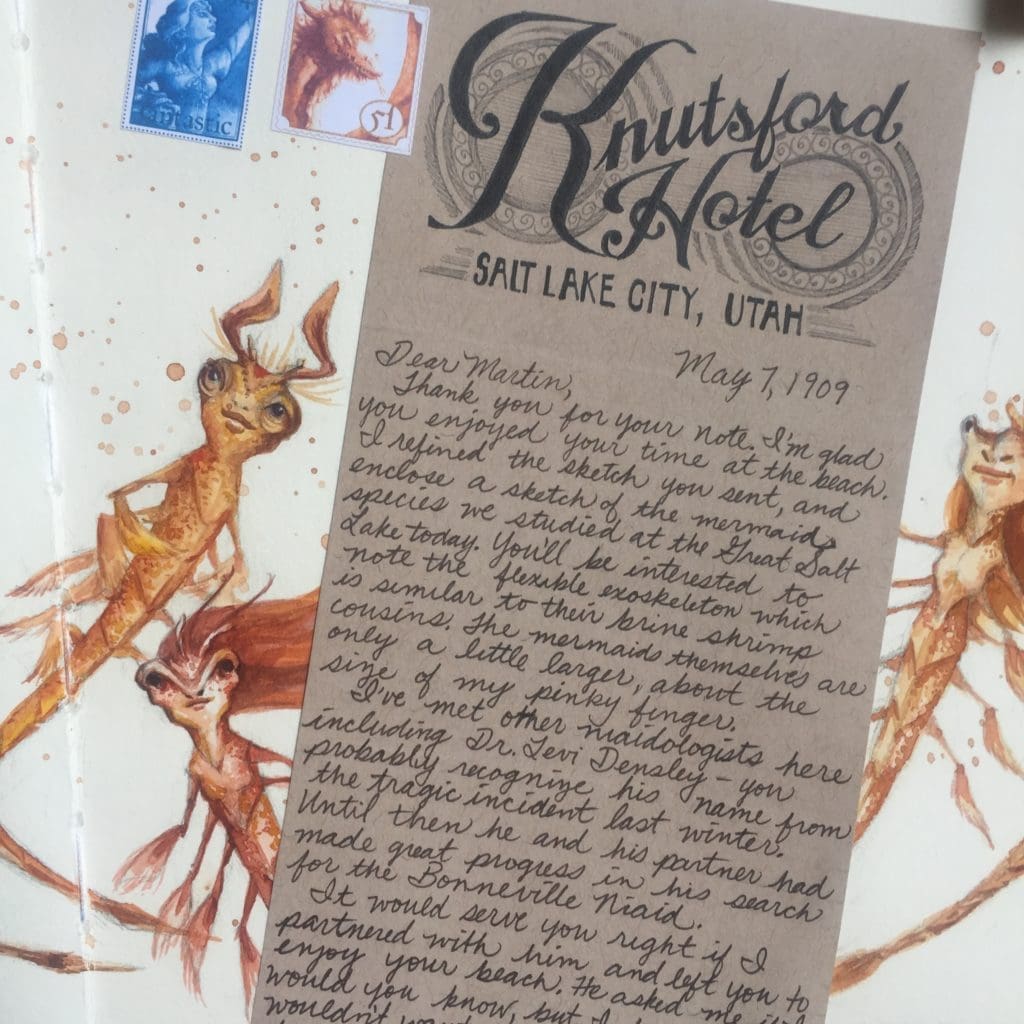 fantastic
51
Knutsford
Hotel
SALT LAKE CITY, UTAH
May 7, 1909
Dear Martin,
Thank you for your note. I'm glad
you enjoyed your time at the beach.
I refined the sketch you sent, and
enclose a sketch of the mermaid
species we studied at the Great Salt
Lake today. You'll be interested to
note the flexible exoskeleton which
is similar to their brine shrimp
cousins. The mermaids themselves are
only a little larger, about the
size of my pinky finger.
I've met other maidologists here
including Dr. Levi Densley - you
probably recognize his name from
the tragic incident last winter.
Until then he and his partner had
made great progress in his search
for the Bonneville Niaid.
It would serve you right if I
partnered with him and left you to
enjoy your beach. He asked me
would you know, but I
wouldn't